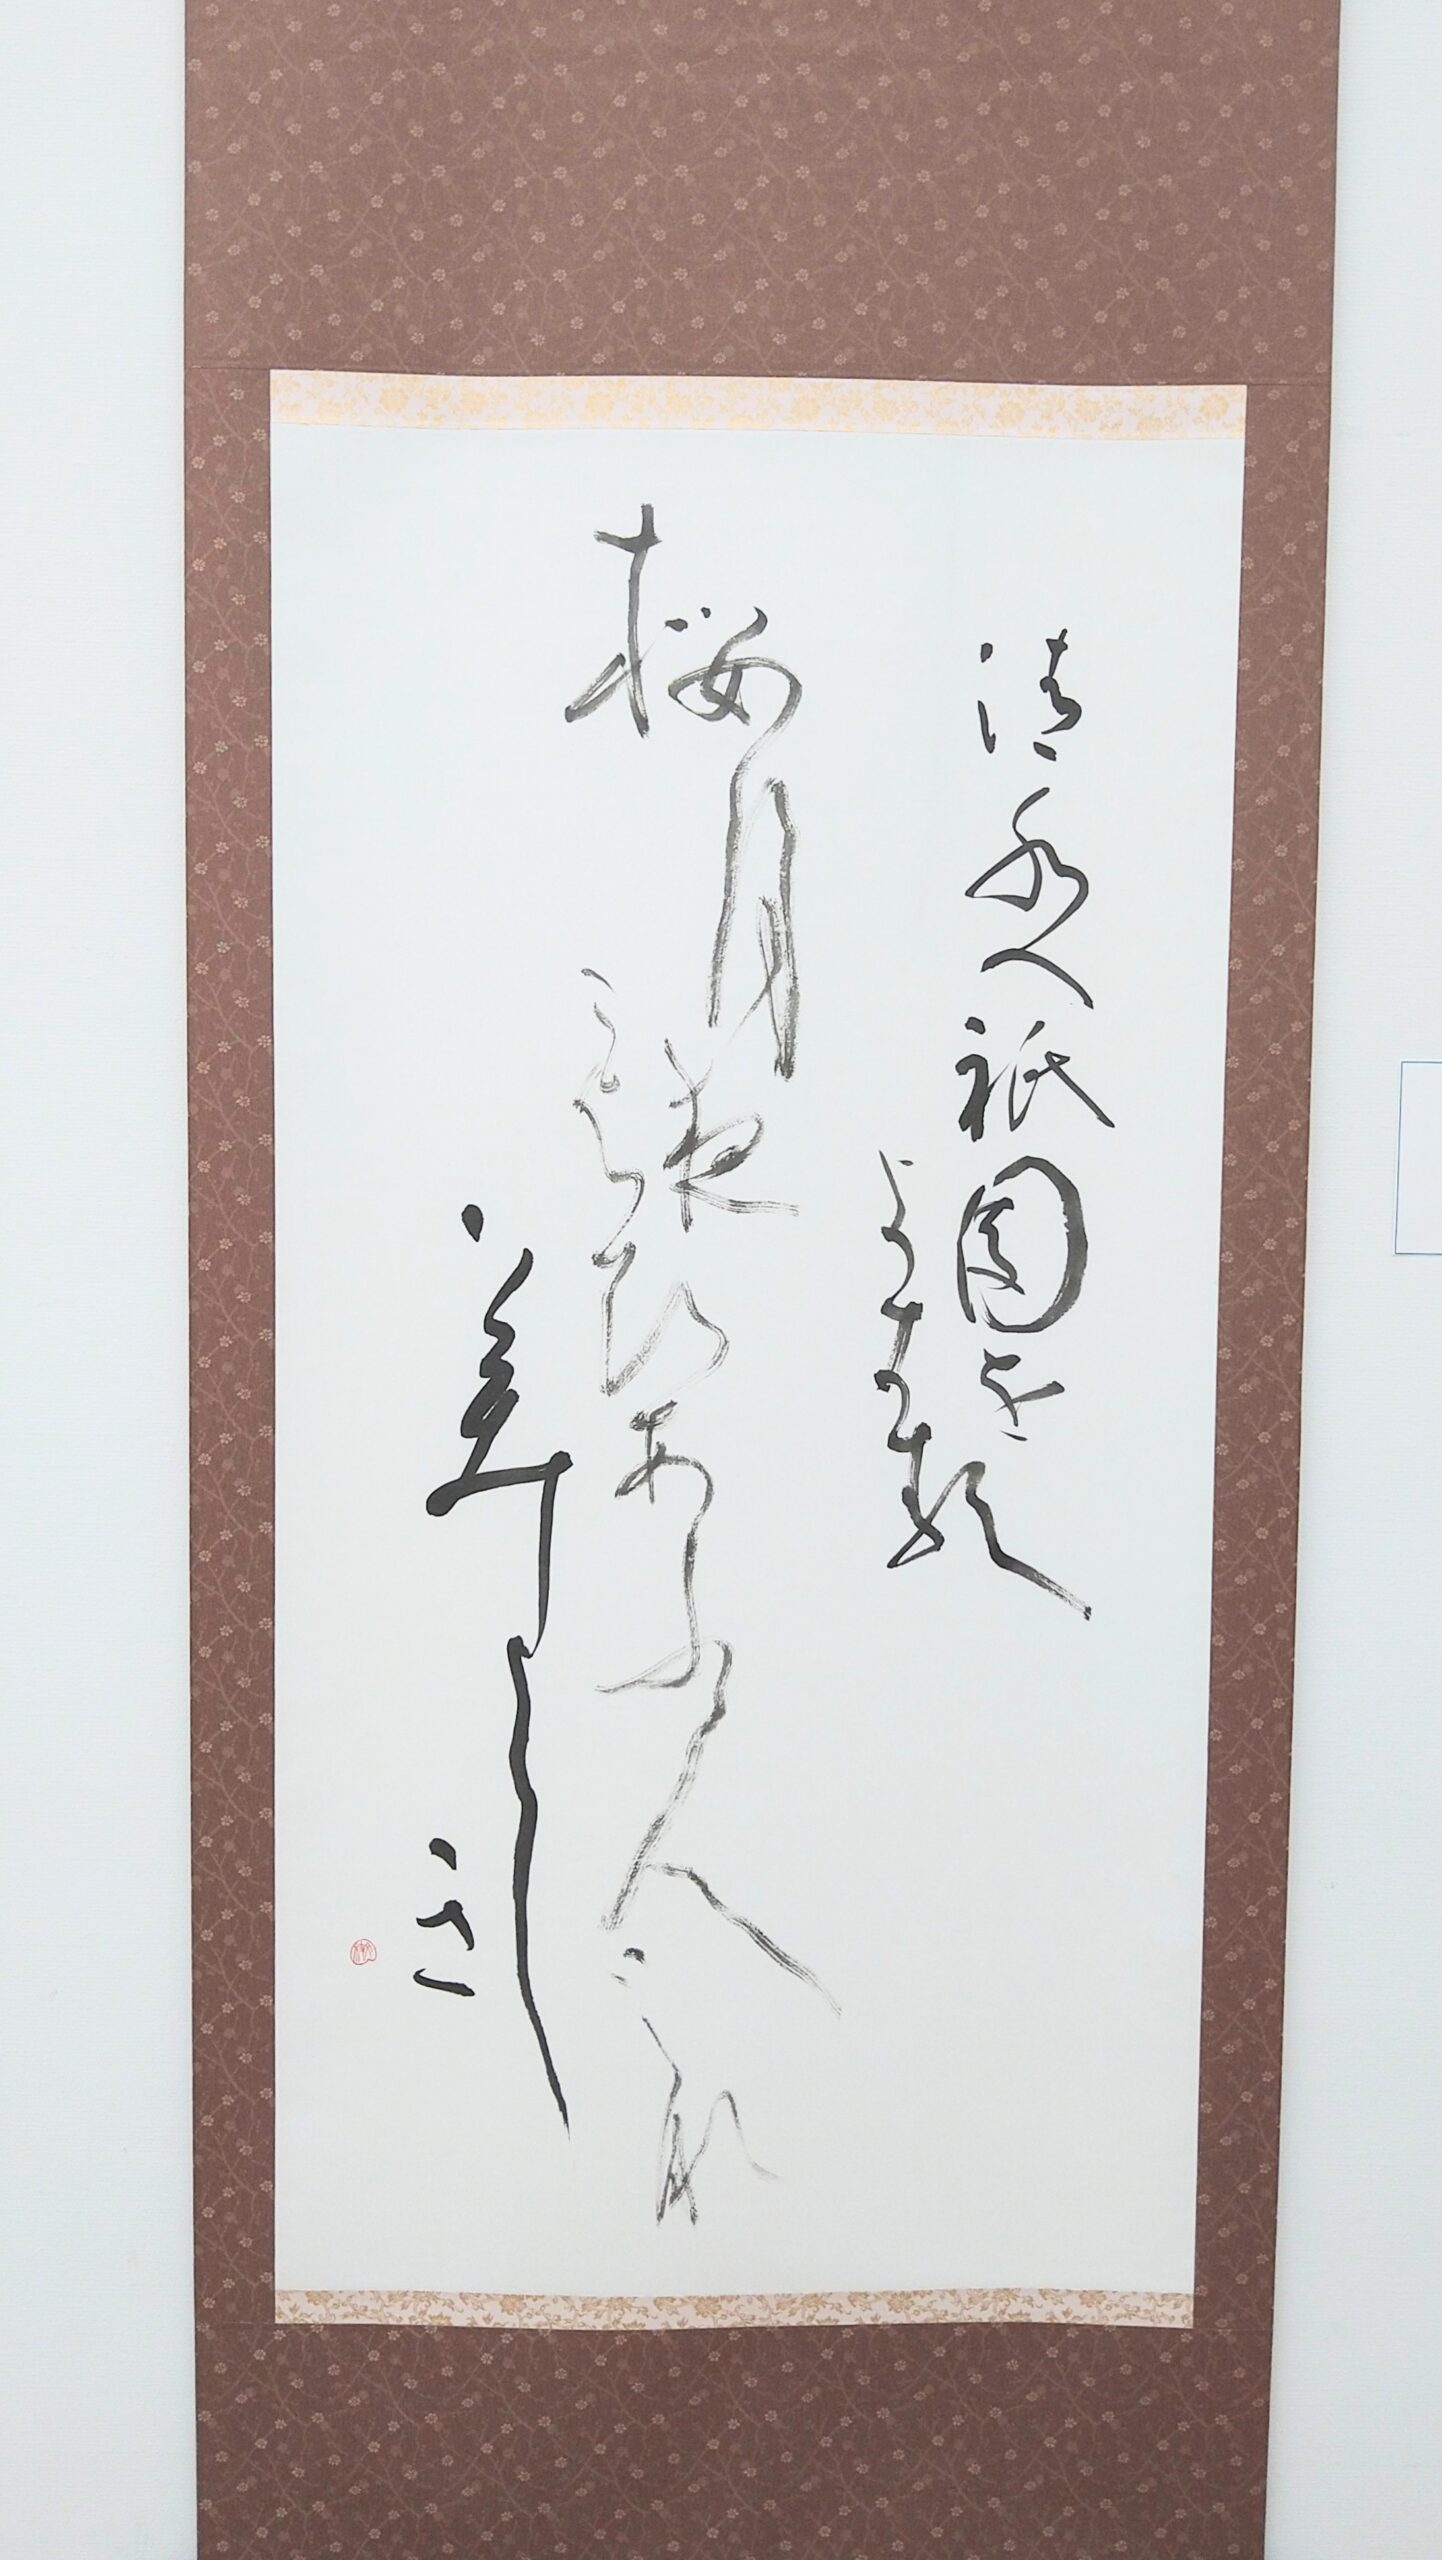 清水へ祇園を
よきる
桜月夜
こよひあふ人
みな
美し
き